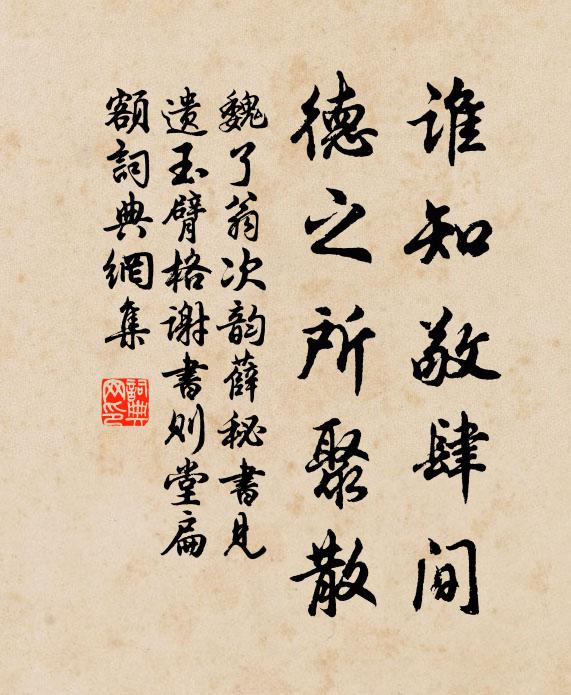 谁知敬肆间
德之所聚散
魏了翁次韵薛秘书见
遗玉臂格谢书则堂扁
额詞典網集
詞典
网印